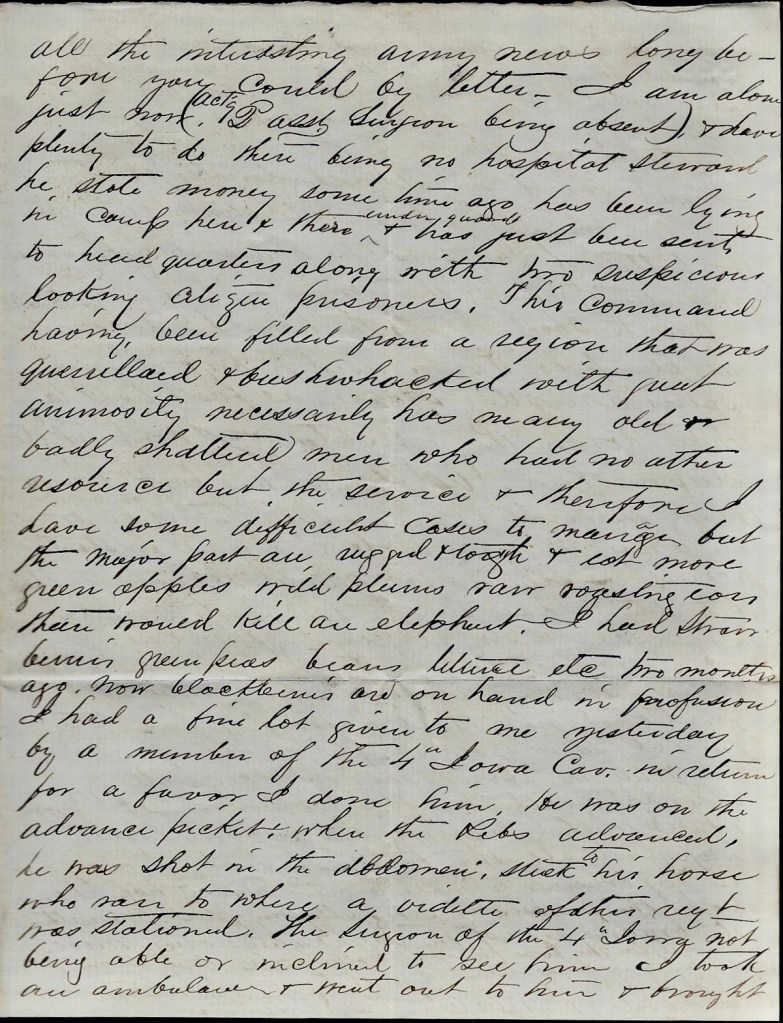 all the interesting army news long be-
fore you could by letter - I am alone
just now. (Actg 2 asst Surgeon being absent) & have
plenty to do there being no hospital steward
he stole money some time ago has been lying
in camp here & there under guard & has just been sent
to head quarters along with two suspicious
looking citizen prisoners. This command
having been filled from a region that was
guerrillaed & bushwhacked with great
animosity necessarily has many old or
badly shattered men who had no other
resource but the service & therefore I
have some difficult cases to manage but
the major part are rugged & tough & eat more
green apples wild plums raw roasting ears
than would kill an elephant. I had straw
berries green peas beans lettuce etc two months
ago. now blackberries are on hand in profusion
I had a fine lot given to me yesterday
by a member of the 4" Iowa Cav. in return
for a favor I done him. He was on the
advance picket & when the Rebs advanced,
he was shot in the abdomen, stuck to his horse
who ran to where a vidette of this regt
was stationed. The Surgeon of the 4" Iowa not
being able or inclined to see him I took
an ambulance & went out to him & brought